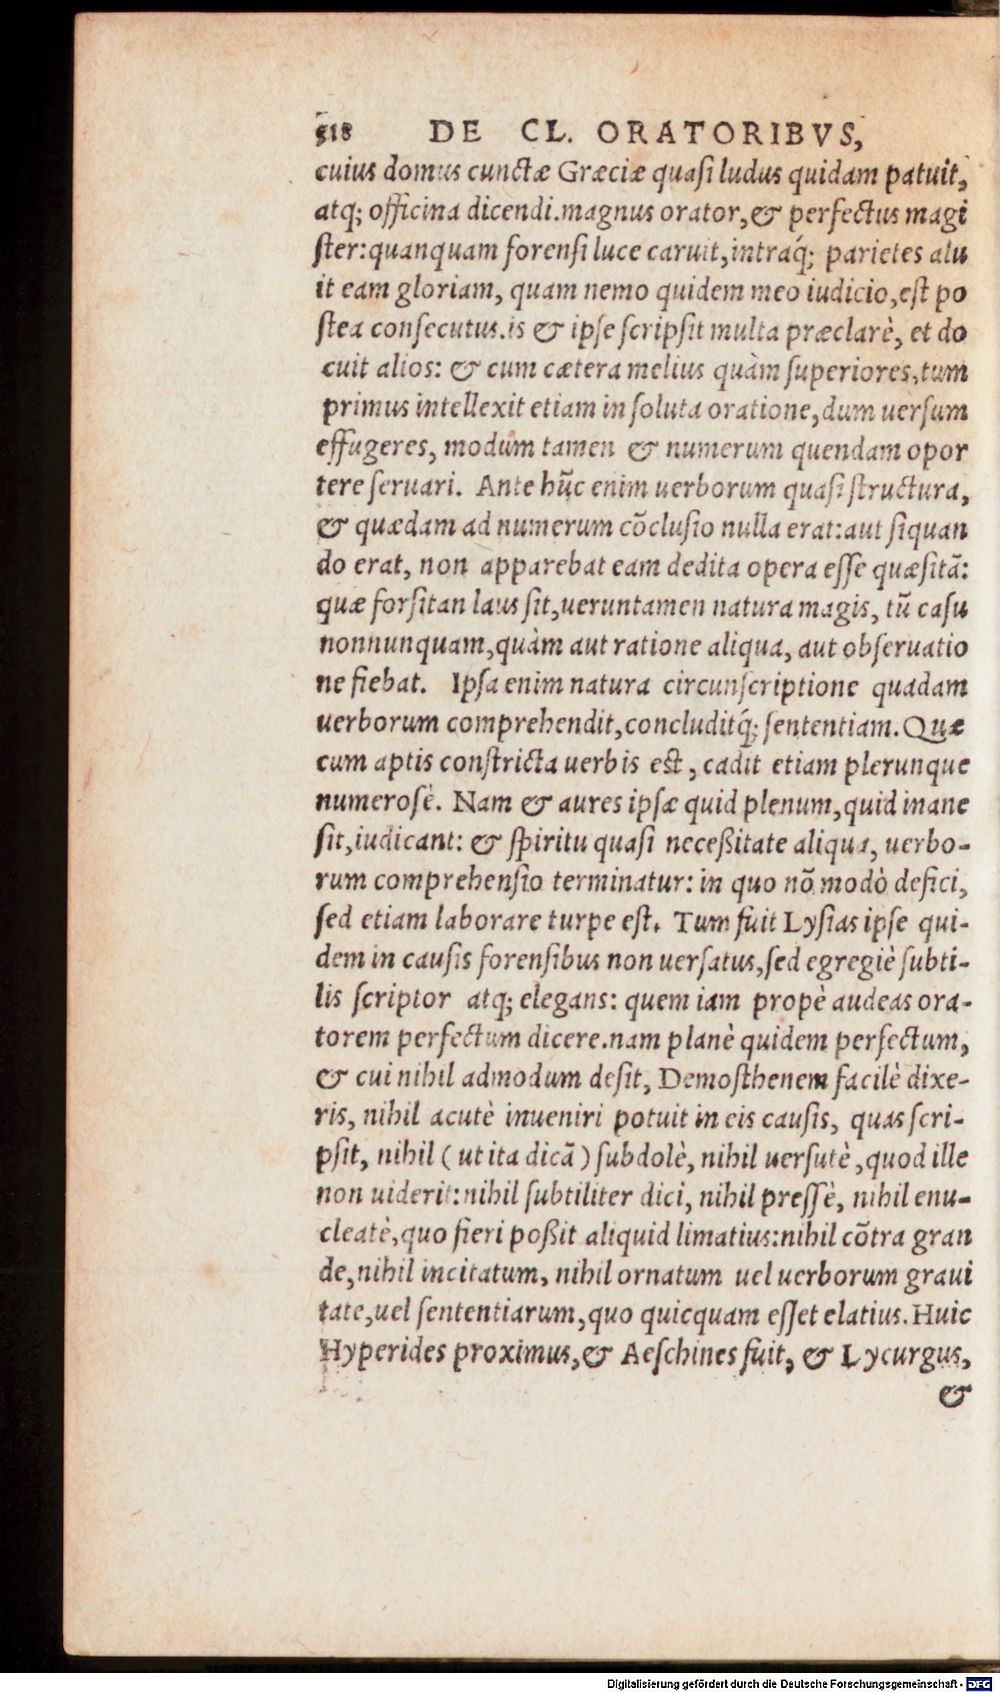 518 DE CL. ORATORIBVS,
cuius domus cunctæ Græciæ quaſi ludus quidam patuit,
atq; officina dicendi.magnus orator,& perfectus magi
ſter:quanquam forenſi luce caruit,intraq́; parietes alu
it eam gloriam, quam nemo quidem meo iudicio,eſt po
ſtea conſecutus.is & ipſe ſcripſit multa præclarè, et do
cuit alios: & cum cætera melius quàm ſuperiores,tum
primus intellexit etiam in ſoluta oratione,dum uerſum
effugeres, modum tamen & numerum quendam opor
tere ſeruari. Ante hũc enim uerborum quaſi ſtructura,
& quædam ad numerum cõcluſio nulla erat:aut ſiquan
do erat, non apparebat eam dedita opera eſſe quæſitã:
quæ forſitan laus ſit,ueruntamen natura magis, tũ caſu
nonnunquam,quàm aut ratione aliqua, aut obſeruatio
ne fiebat. Ipſa enim natura circunſcriptione quadam
uerborum comprehendit,concluditq́; ſententiam.Quæ
cum aptis conſtricta uerbis eſt, cadit etiam plerunque
numeroſè. Nam & aures ipſæ quid plenum,quid inane
ſit,iudicant: & ſpiritu quaſi neceßitate aliqua, uerbo-
rum comprehenſio terminatur: in quo nõ modò defici,
ſed etiam laborare turpe eſt. Tum fuit Lyſias ipſe qui-
dem in cauſis forenſibus non uerſatus,ſed egregiè ſubti-
lis ſcriptor atq; elegans: quem iam propè audeas ora-
torem perfectum dicere.nam planè quidem perfectum,
& cui nihil admodum deſit, Demoſthenem facilè dixe-
ris, nihil acutè inueniri potuit in eis cauſis, quas ſcri-
pſit, nihil ( ut ita dicã ) ſubdolè, nihil uerſutè,quod ille
non uiderit:nihil ſubtiliter dici, nihil preſſè, nihil enu-
cleatè,quo fieri poßit aliquid limatius:nihil cõtra gran
de,nihil incitatum, nihil ornatum uel uerborum graui
tate,uel ſententiarum,quo quicquam eſſet elatius.Huic
Hyperides proximus,& Aeſchines fuit, & Lycurgus,
&
Digitalisierung gefördert durch die Deutsche Forschungsgemeinschaft - DFG